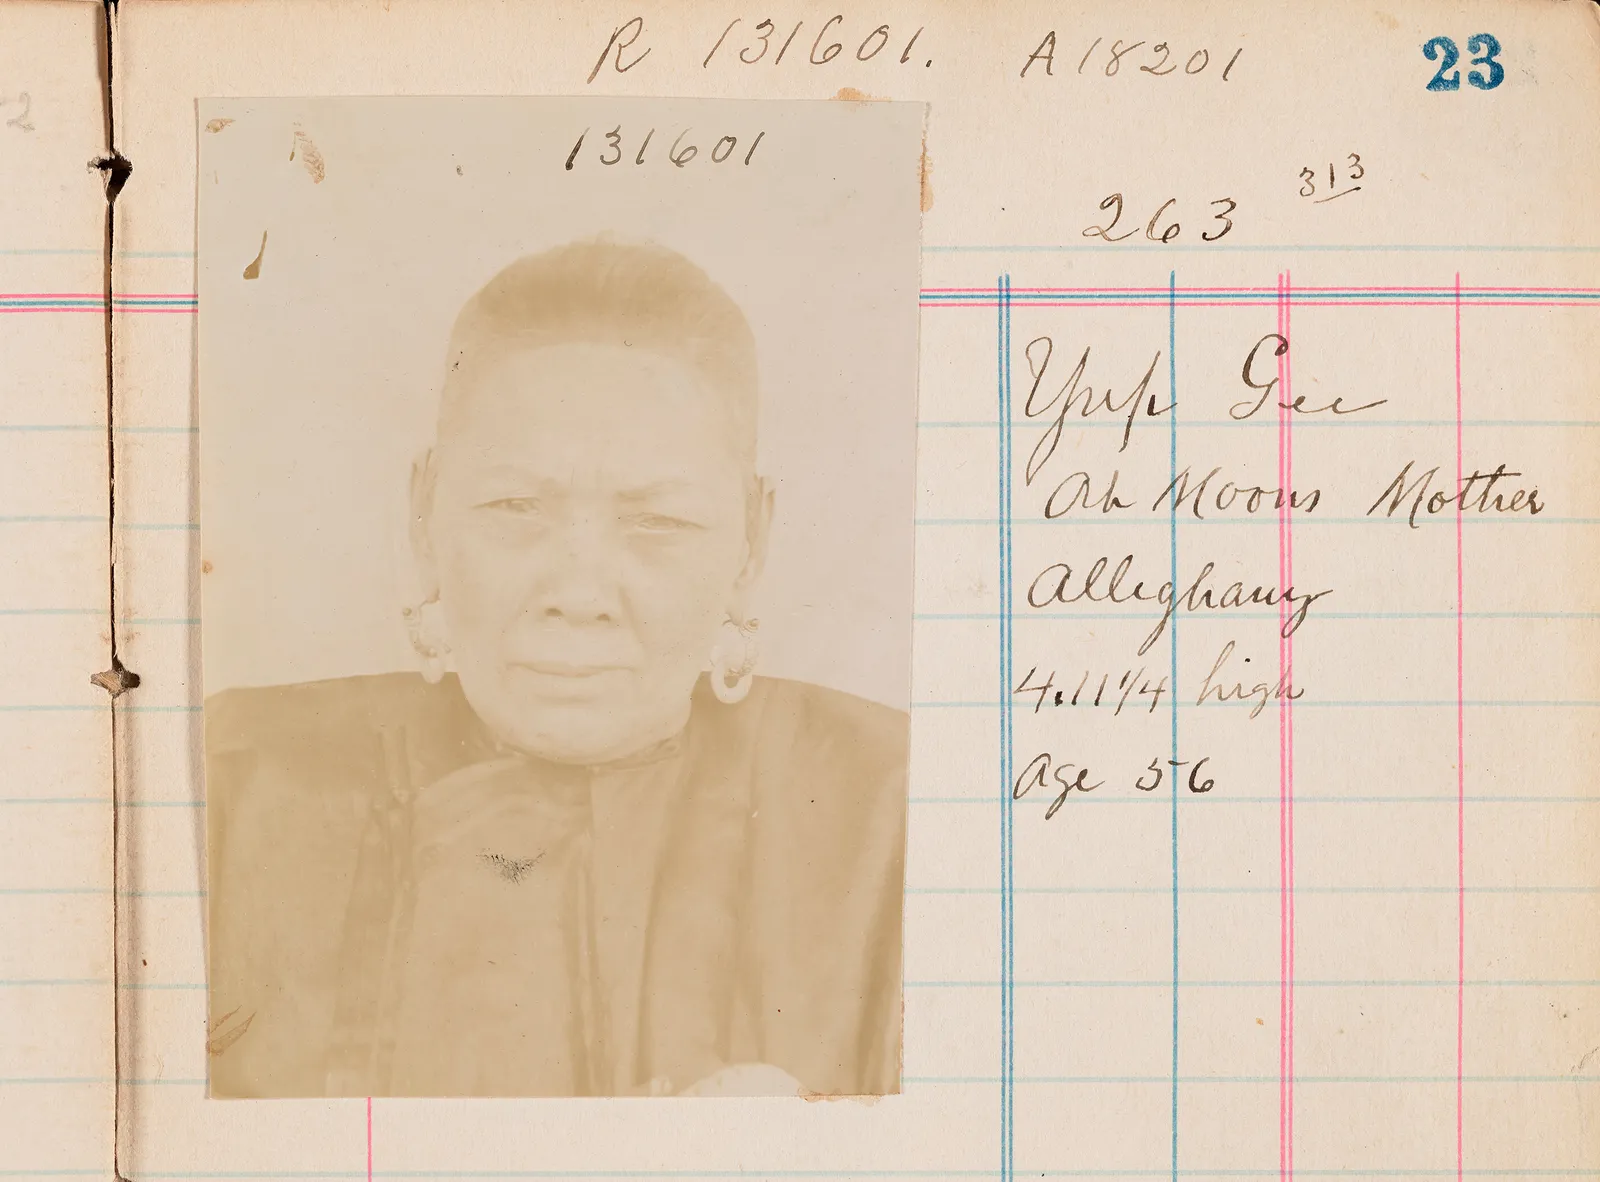 R 131601. A 18201 23
131601
263 313
Yup Gee
Ah Moons Mother
Alleghany
4.11 1/4 high
Age 56